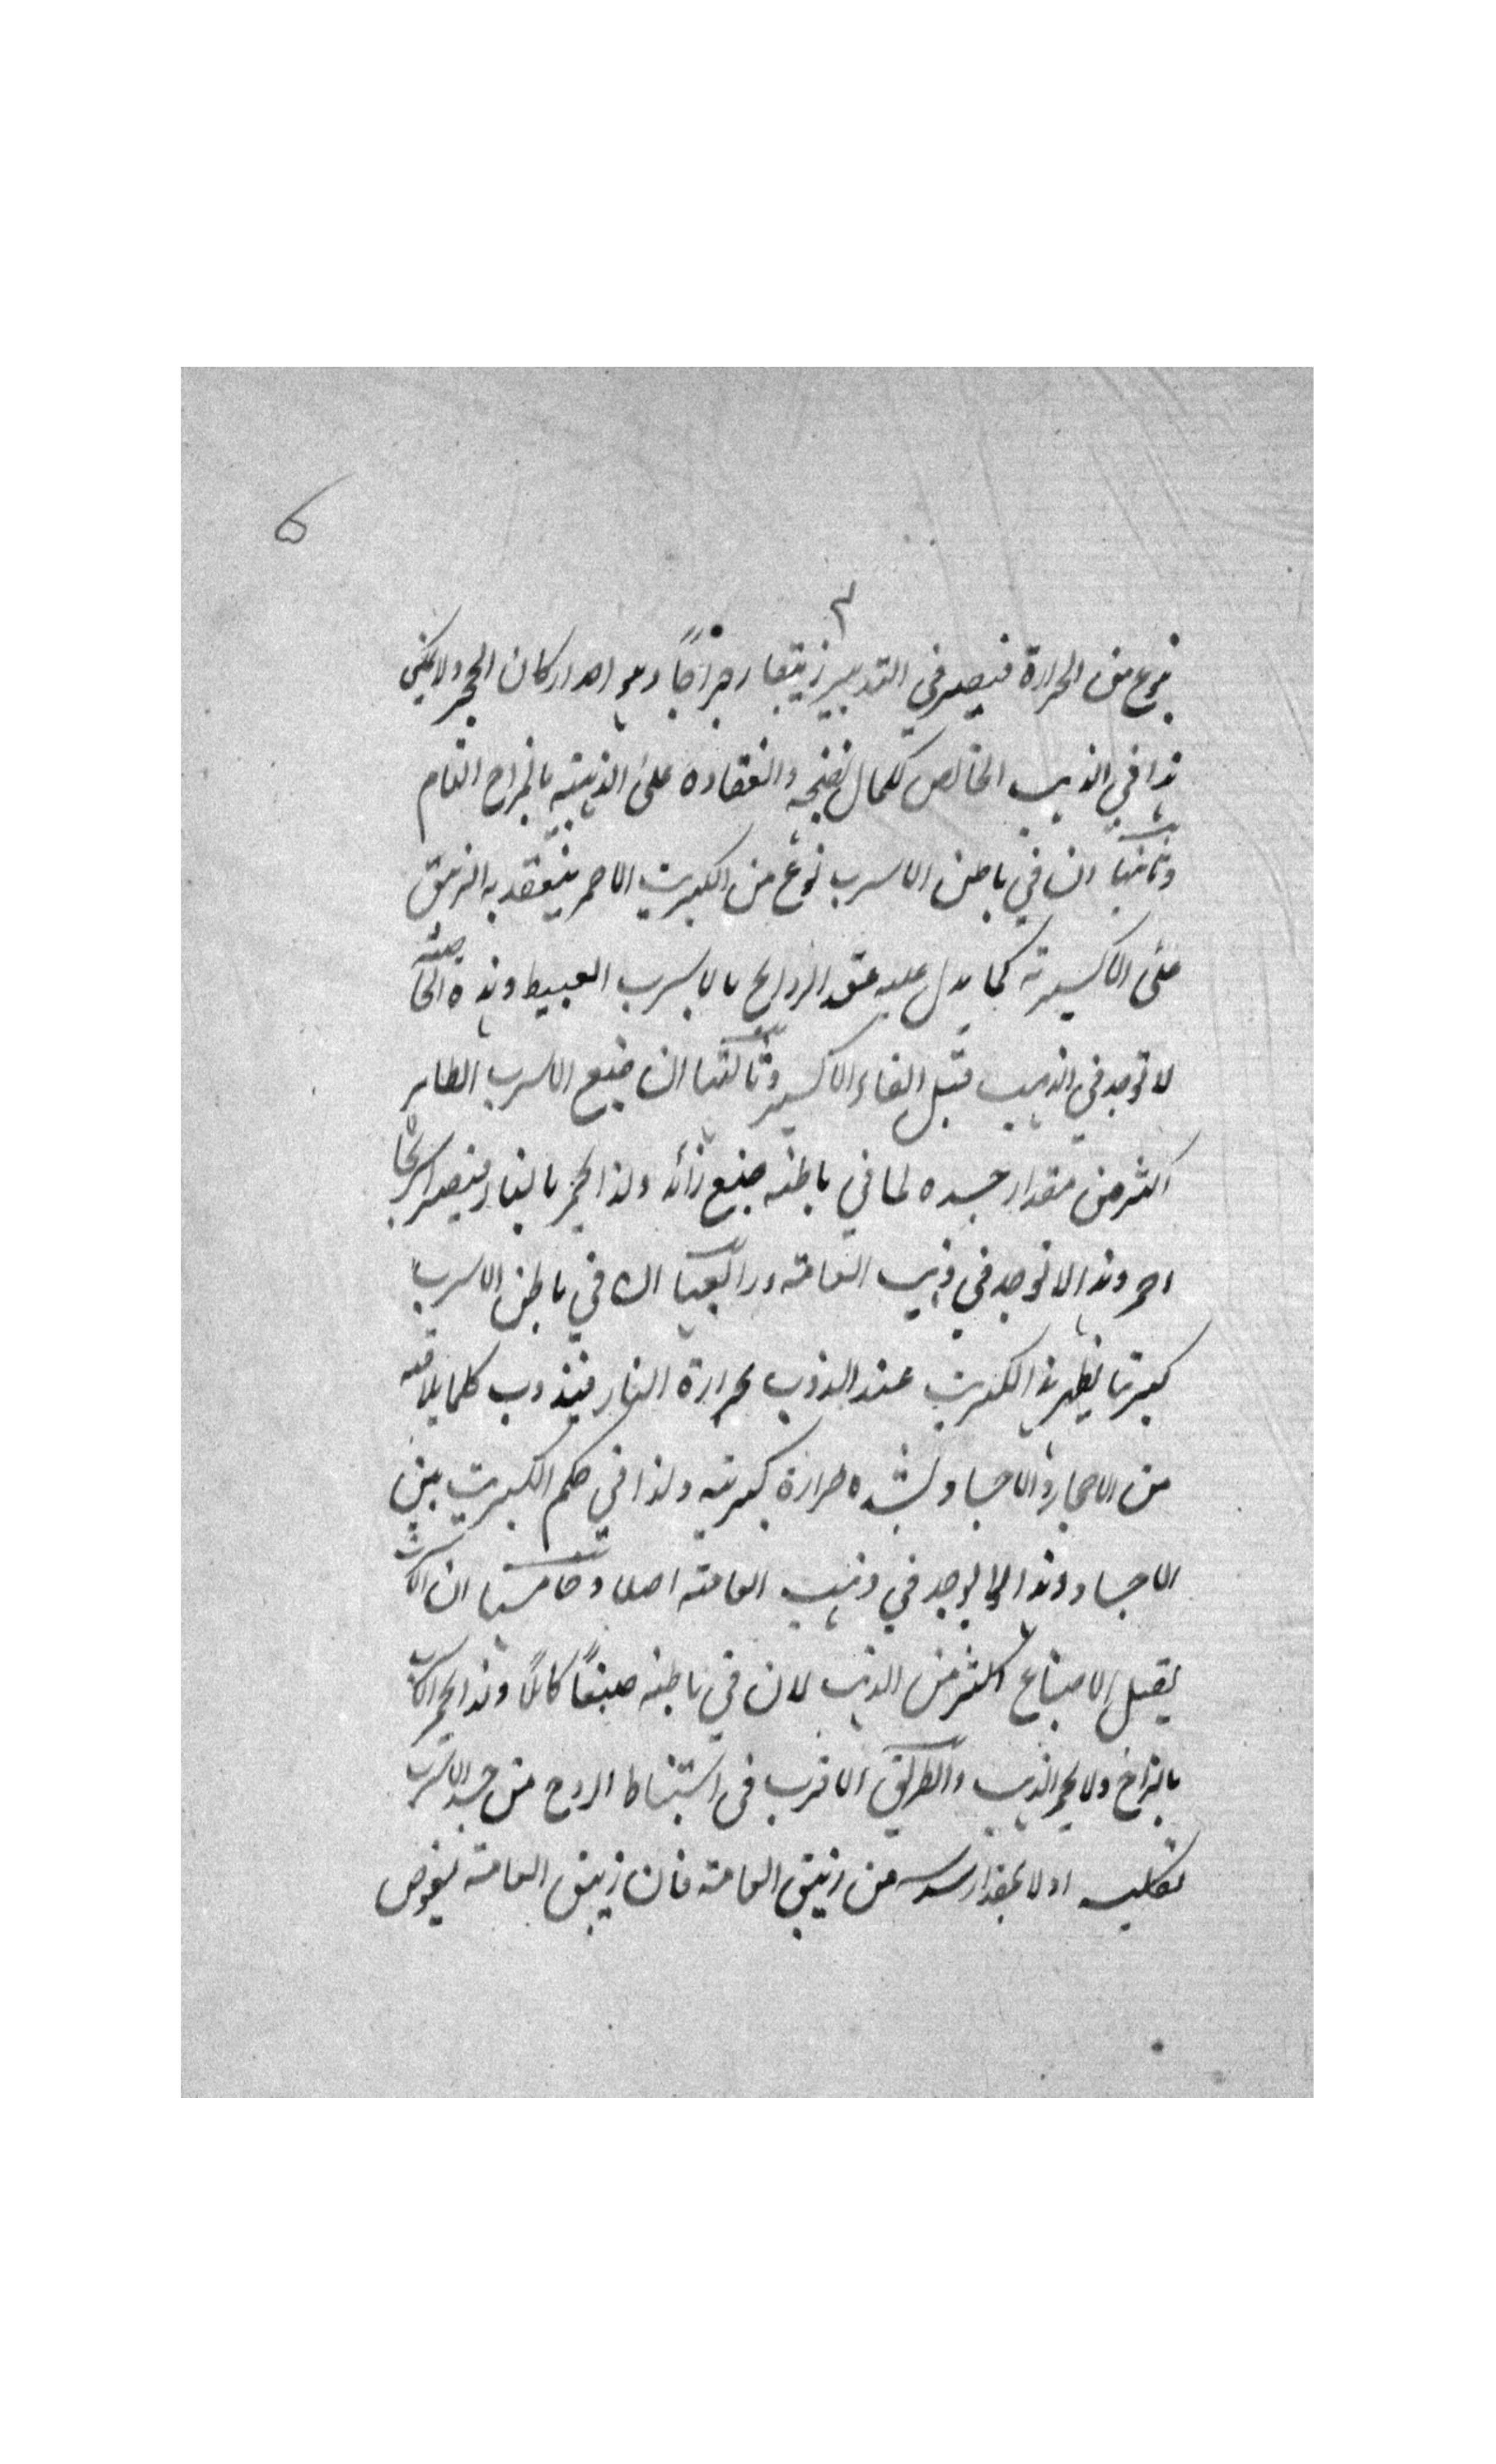 ٥
٣
نوع من الحرارة فيصير في التدبير زيبقا رجراجًا وهو احد اركان الحجر ولا يمكن
هذا في الذهب الخالص لكمال نضجه وانعقاده على الذهبية بالمزاج التام
وثانيا ان في باطن الاسرب نوع من الكبريت الاحمر ينعقد به الزيبق
على الاكسيرية كما يدل عليه عقد الروايح بالاسرب العبيط وهذه الخاصية
لا توجد في الذهب قبل القاء الاكسير وثالثا ان صبغ الاسرب الطاهر
اكثر من مقدار جسده لما في باطنه صبغ زائد ولذا يحمر بالنار فيصير اسرنجا
احمر وهذا لا توجد في ذهب العامة ورابعا ان في باطن الاسرب
كبريتا يظهر هذا الكبريت عند الذوب بحرارة النار فيذوب كلما يلاقيه
من الاحجار والاجساد لشده حرارة كبريته ولذا في حكم الكبريت بين
الاجساد وهذا لا يوجد في ذهب العامة اصلا وخامسا ان الاسرب
يقبل الاصباغ اكثر من الذهب لان في باطنه صبغًا كاملًا وهذا يحمر الاسرب
بالزاج ولا يحمر الذهب والطريق الاقرب في استنباط الروح من جسد الاسرب
تكليسه اولا بمقدار سدسه من زيبق العامة فان زيبق العامة يغوص